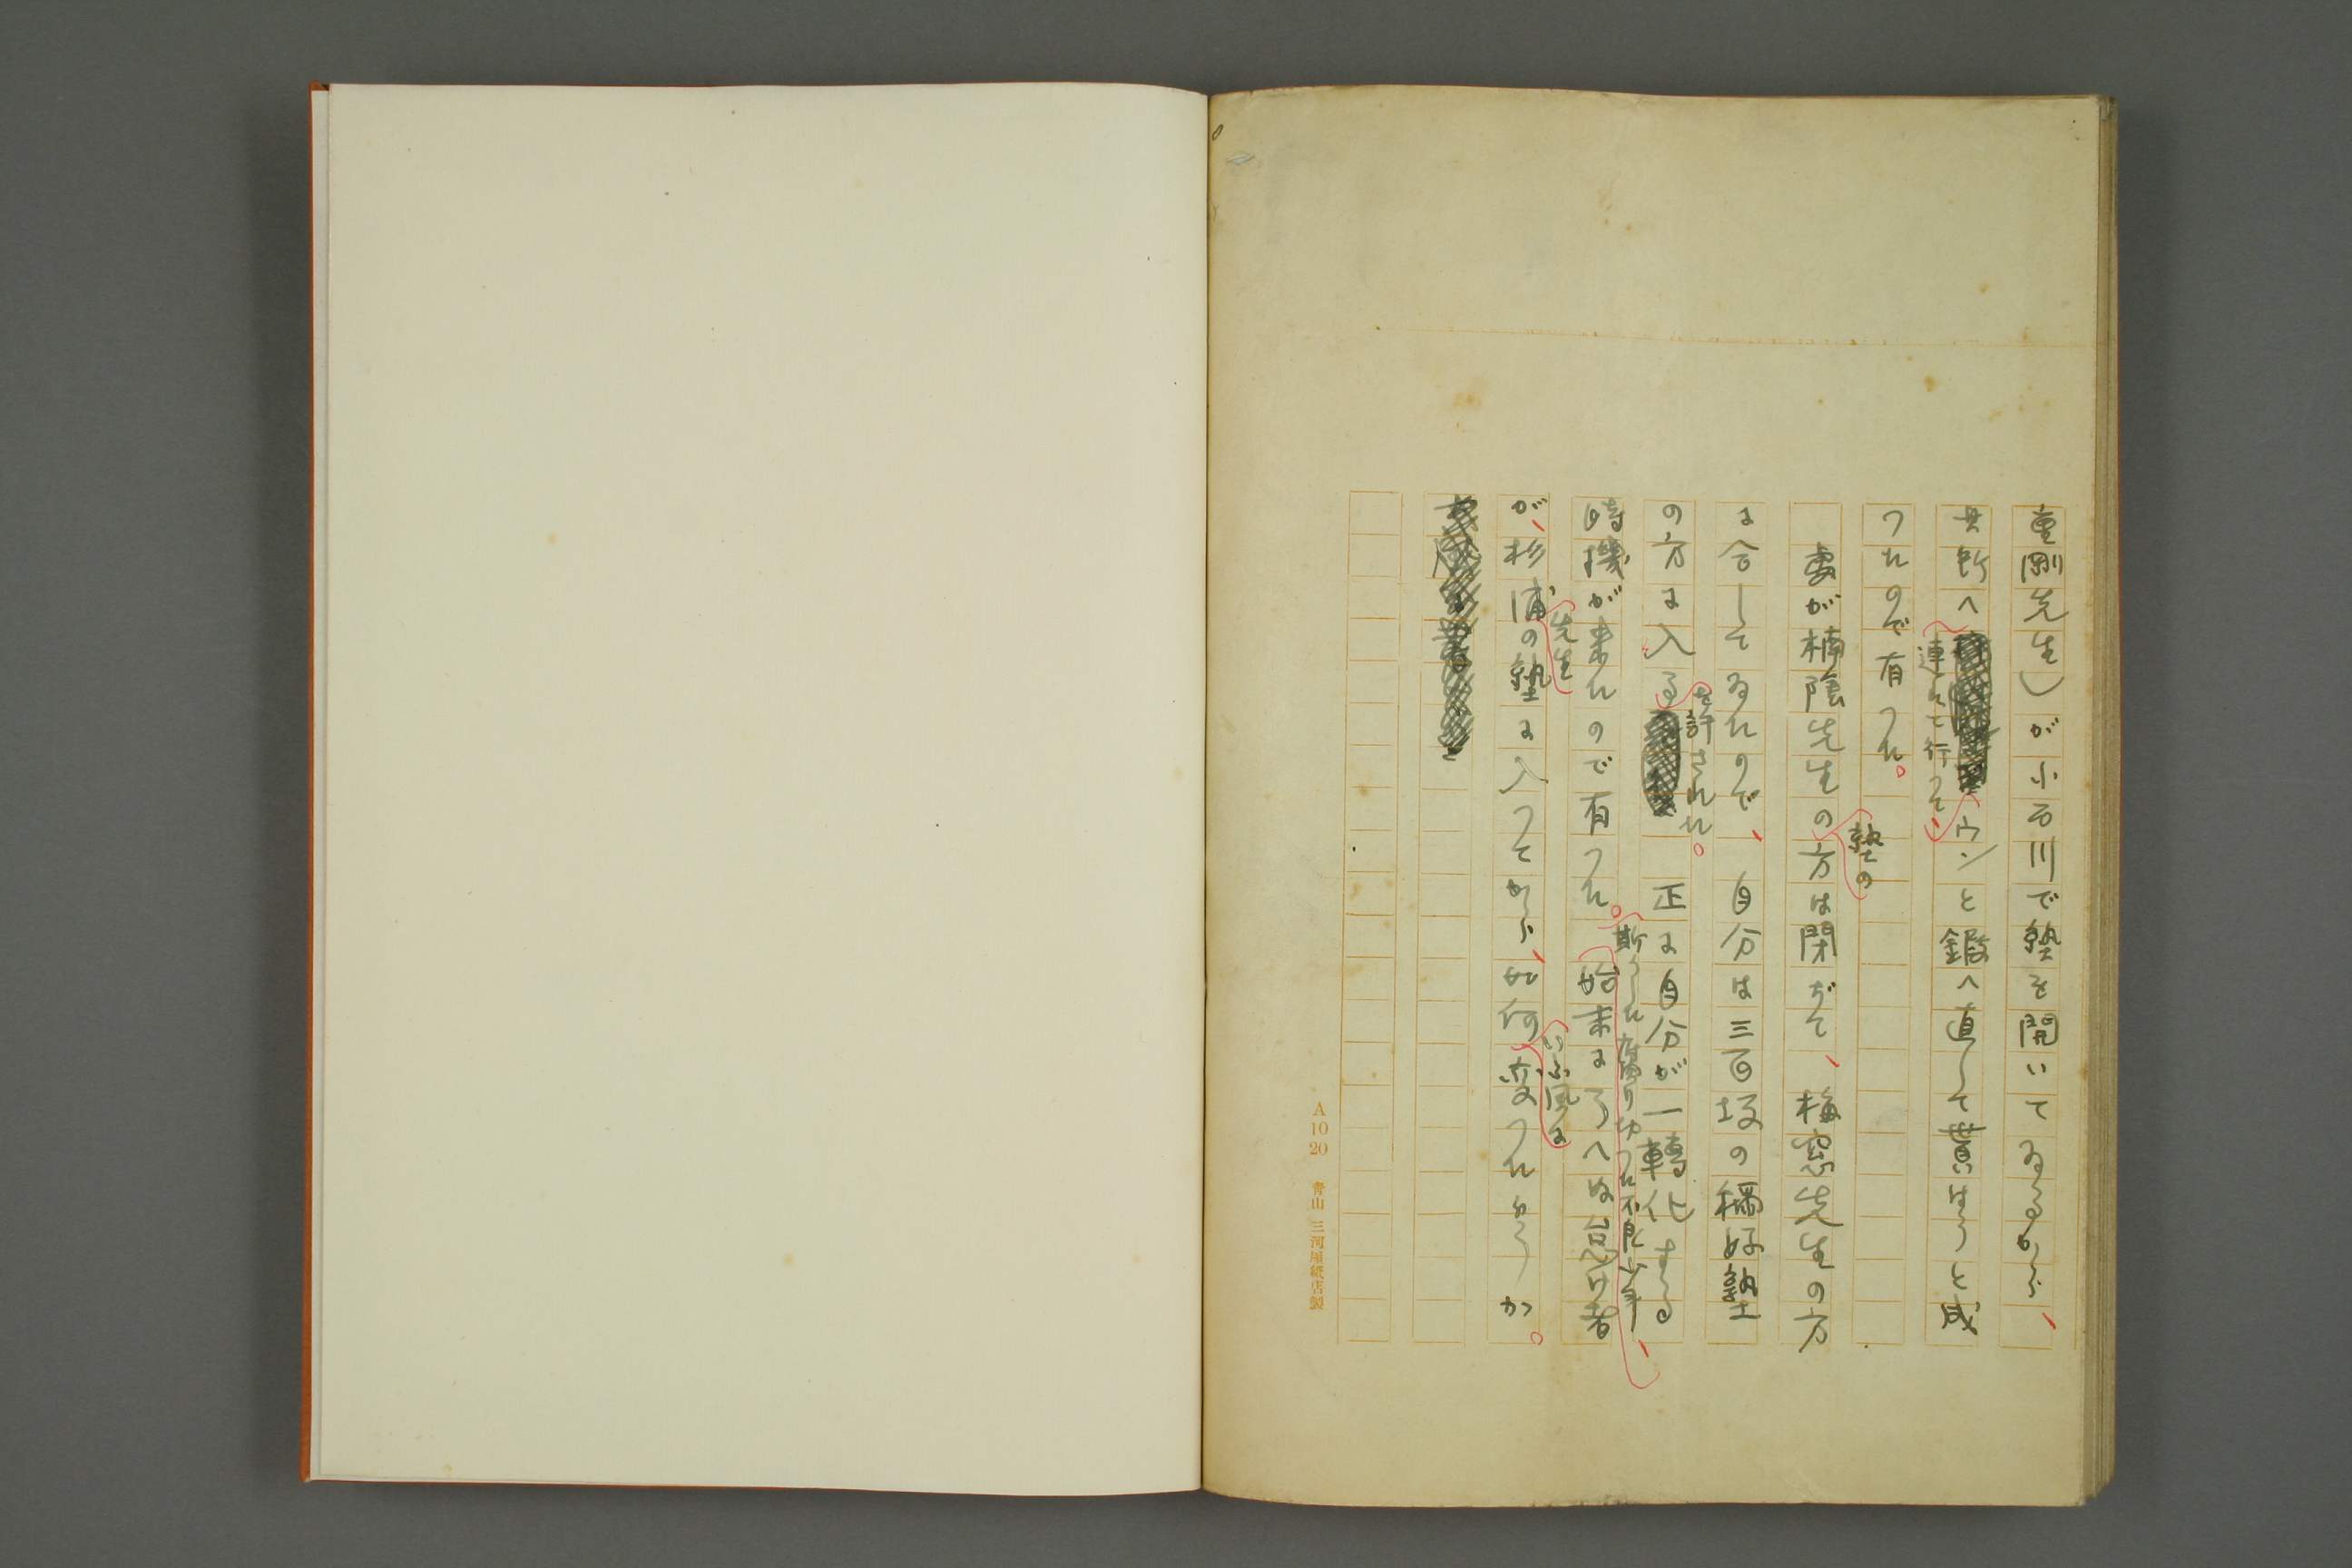 重剛先生)が小石川で塾を開いてゐるから、
其所へ
連れて行つて、
ウンと鍛へ直して貰はうと成
つたので有つた。
處が楠陰先生の方は閉ぢて、梅窓先生の方
塾の
に合してゐたので、自分は三百坂の稱好塾
の方に入る 正に自分が一轉化する
を許された。
時機が来たので有つた。始末に了へぬ怠け者
斯うした腐り切つた不良少年、
が、杉浦の塾に入つてから、如何変つたらうか。
先生
いふ風に
A 10 20 青山 三河屋紙店製